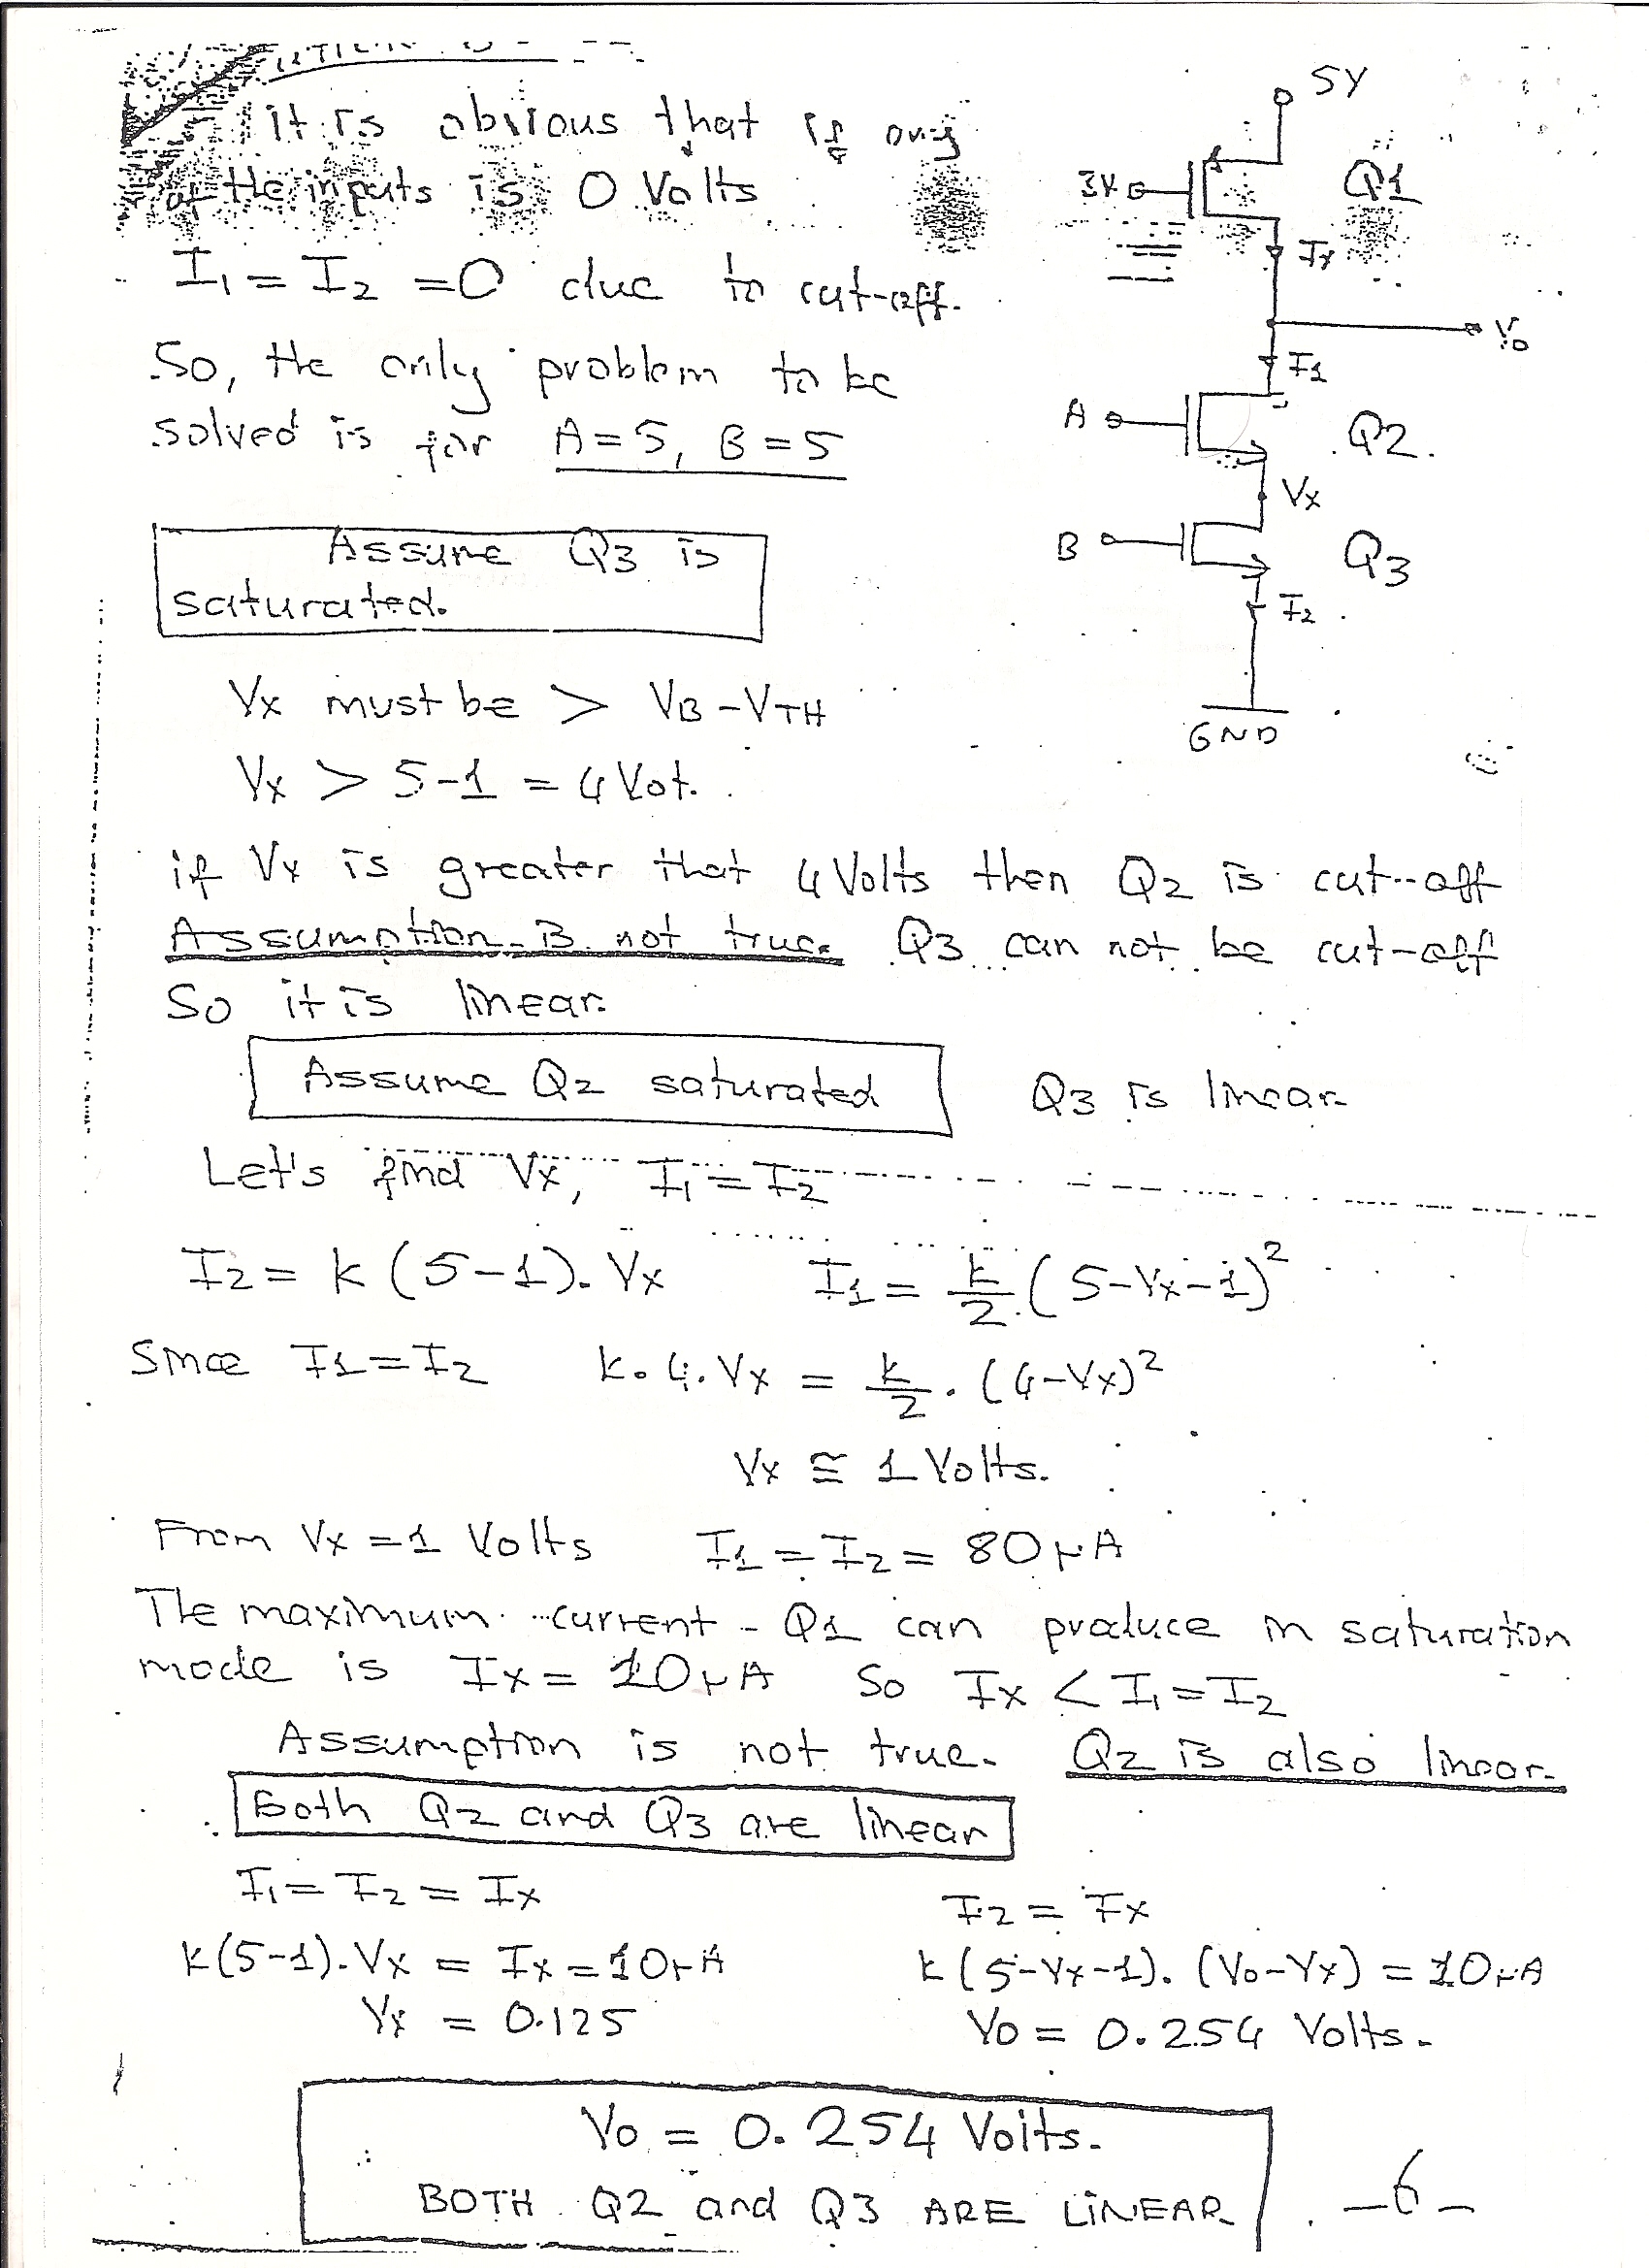 it is obvious that if any
of the inputs is 0 Volts
I1 = I2 = 0 due to cut-off.
So, the only problem to be
solved is for A=5, B=5
5V
3V
Q1
Ix
Vo
I1
A
Q2.
Vx
B
Q3
I2
GND
Assume Q3 is
saturated.
Vx must be > VB-VTH
Vx > 5-1 = 4 Vot.
if Vx is greater that 4 Volts then Q2 is cut-off
Assumption is not true. Q3 can not be cut-off
So it is linear.
Assume Q2 saturated
Q3 is linear
Let's find Vx, I1 = I2
I2 = k (5-1). Vx I1 = k/2 (5-Vx-1)²
Since I1 = I2 k.4.Vx = k/2 . (4-Vx)²
Vx ≅ 1 Volts.
From Vx = 1 Volts I1 = I2 = 80 μA
The maximum current Q1 can produce in saturation
mode is Ix = 10 μA So Ix < I1 = I2
Assumption is not true. Q2 is also linear.
Both Q2 and Q3 are linear
I1 = I2 = Ix
I2 = Ix
k(5-1).Vx = Ix = 10 μA
k(5-Vx-1).(Vo-Vx) = 10 μA
Vx = 0.125
Vo = 0.254 Volts.
Vo = 0.254 Volts.
BOTH Q2 and Q3 ARE LİNEAR
-6-